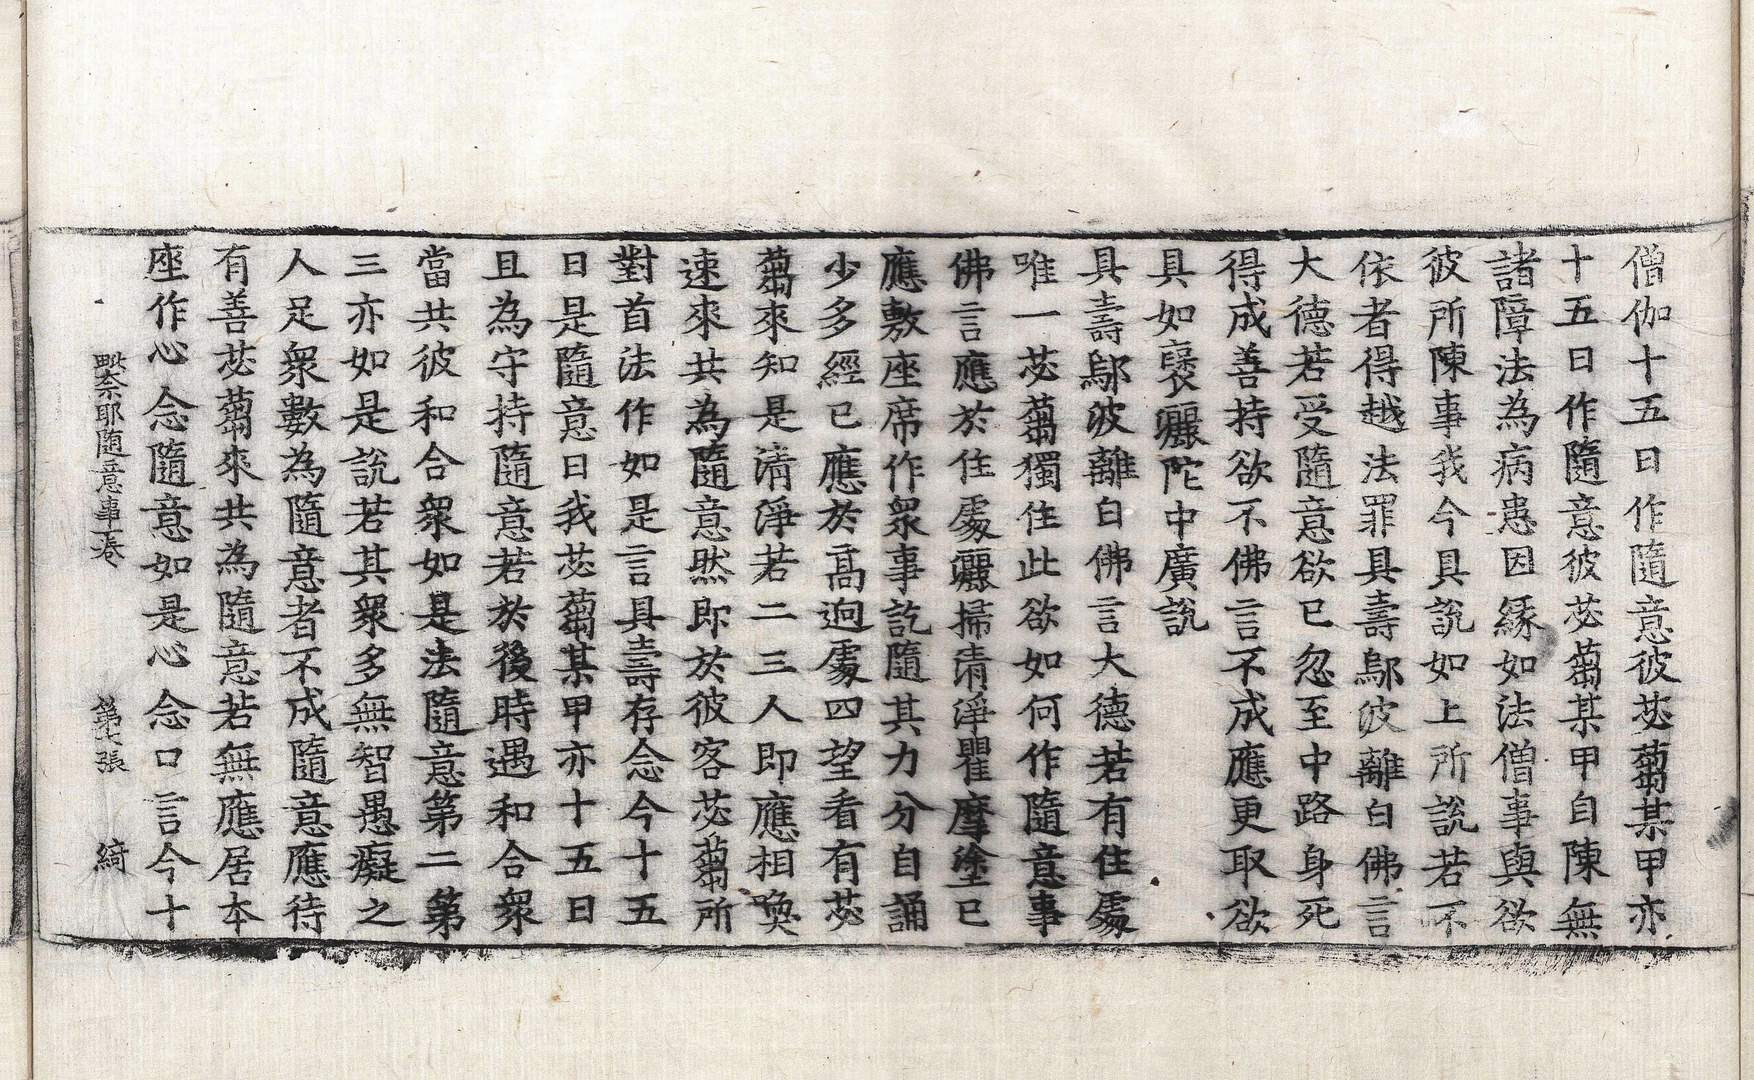 僧伽十五日作隨意彼苾蒭某甲亦
十五日作隨意彼苾蒭某甲自陳無
諸障法為病患因緣如法僧事與欲
彼所陳事我今具說如上所說若不
依者得越法罪具壽鄔波離白佛言
大德若受隨意欲已忽至中路身死
得成善持欲不佛言不成應更取欲
具如褒灑陀中廣說
具壽鄔波離白佛言大德若有住處
唯一苾蒭獨住此欲如何作隨意事
佛言應於住處灑掃清淨瞿摩塗已
應敷座席作衆事訖隨其力分自誦
少多經已應於高迥處四望看有苾
蒭來知是清淨若二三人即應相喚
速來共為隨意然即於彼客苾蒭所
對首法作如是言具壽存念今十五
日是隨意日我苾蒭某甲亦十五日
且為守持隨意若於後時遇和合衆
當共彼和合衆如是法隨意第二第
三亦如是說若其衆多無智愚癡之
人足衆數為隨意者不成隨意應待
有善苾蒭來共為隨意若無應居本
座作心念隨意如是心念口言今十
毗奈耶隨意事一卷 第七張 綺